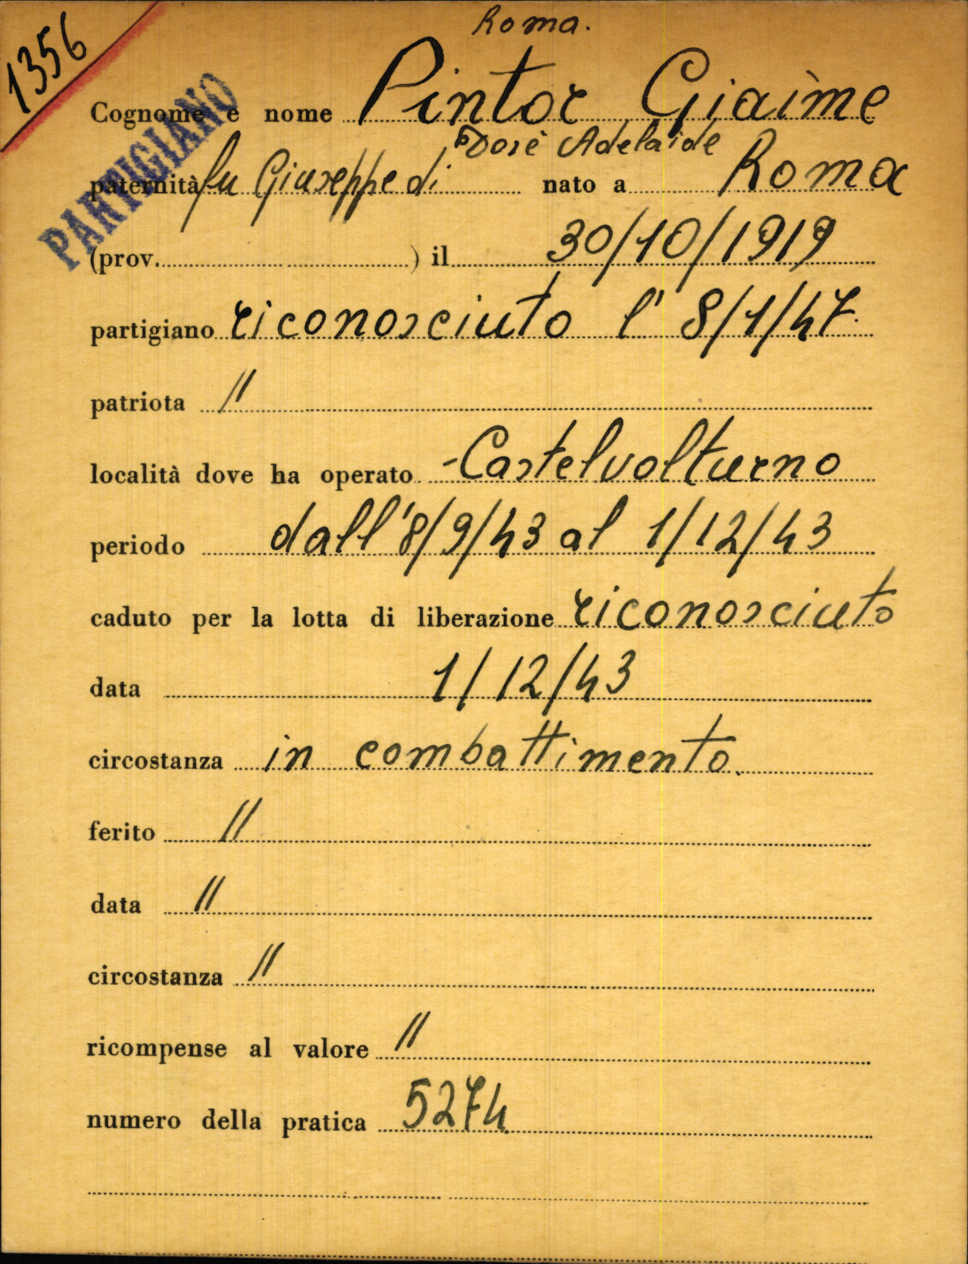 Roma.
1356
PARTIGIANO
Cognome e nome Pintor Giaìme
Dorè Adelaide
paternità fu Giuseppe di nato a Roma
(prov. ) il 30/10/1919
partigiano riconosciuto l' 8/1/47
patriota //
località dove ha operato - Castelvolturno
periodo dall'8/9/43 al 1/12/43
caduto per la lotta di liberazione riconosciuto
data 1/12/43
circostanza in combattimento.
ferito //
data //
circostanza //
ricompense al valore //
numero della pratica 5274